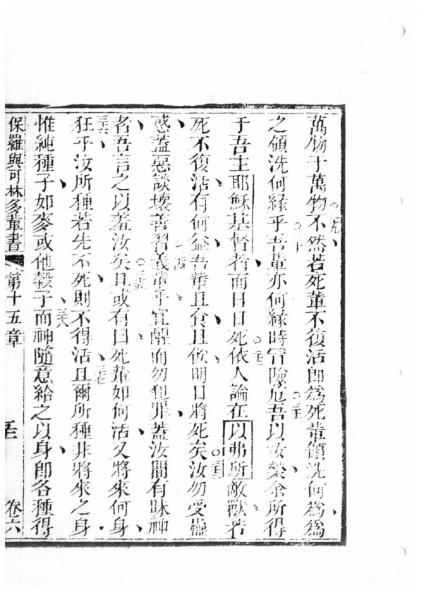 萬物于萬物不然若死輩不復活即為死輩領洗何為為
之領洗何緣乎吾輩亦何緣時冒險危吾以汝榮余所得
于吾主耶穌基督者而日日死依人論在以弗所敵獸若
死不復活有何益吾輩且食且飲明日將死矣汝勿受蠱
惑蓋惡談壞善習義乎宜醒而勿犯罪蓋汝間有昧神
者吾言之以羞汝矣且或有曰死輩如何活又將來何身
狂乎汝所種若先不死則不得活且爾所種非將來之身
惟純種子如麥或他穀子而神隨意給之以身即各種得
保羅與可林多輩書 第十五章 卷六